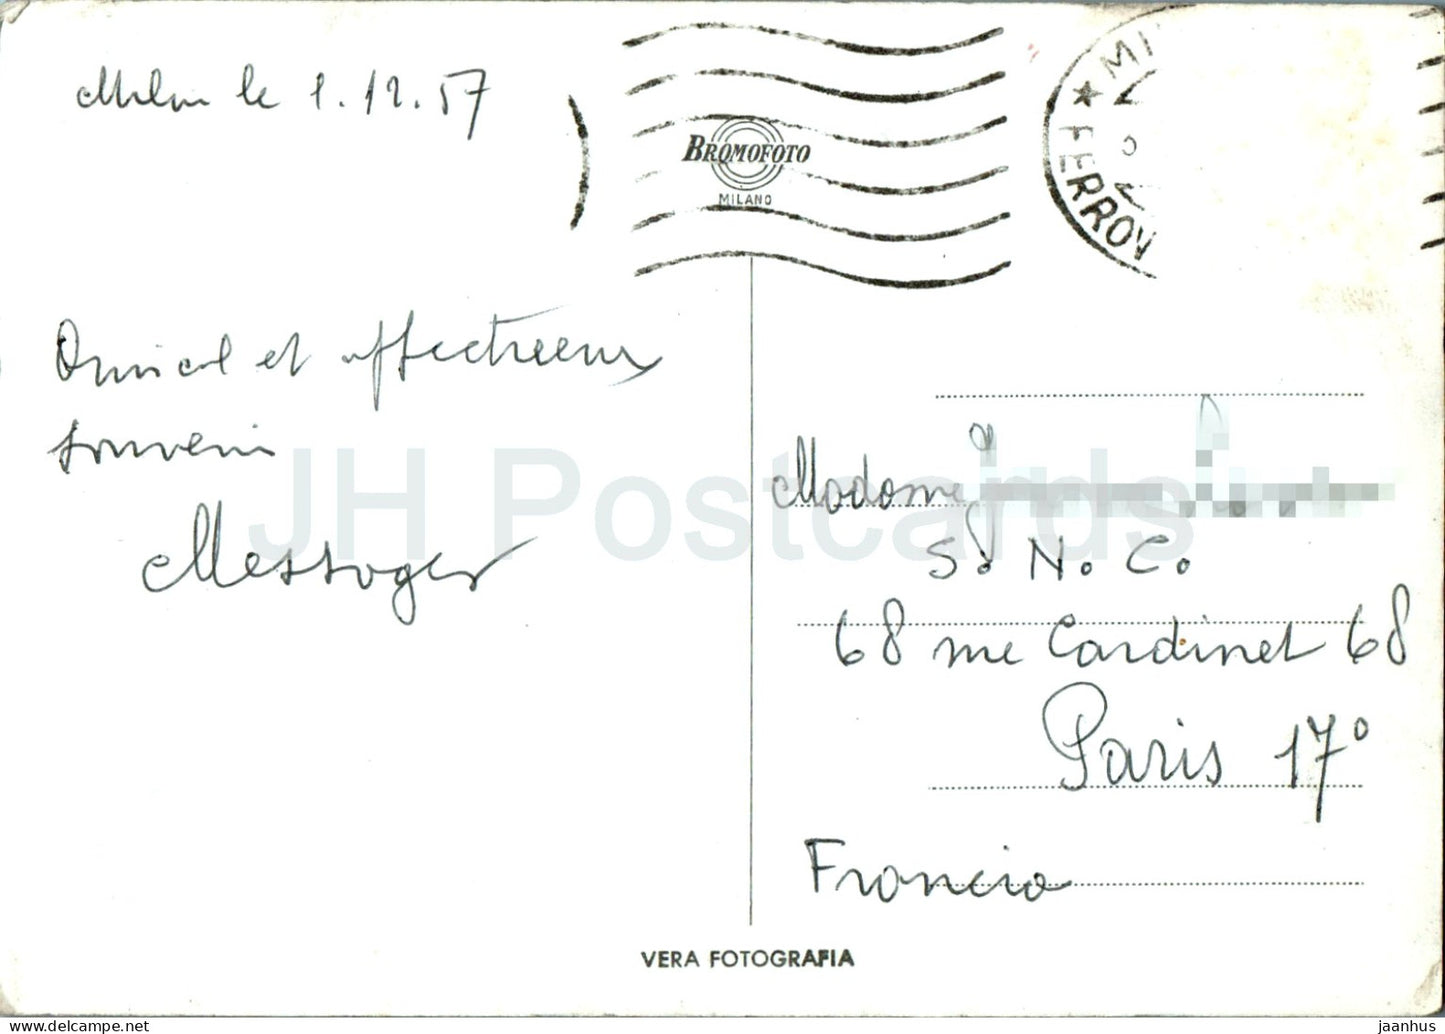 Milan le 1.12.57
BROMOFOTO
MILANO
★ MI
FERROV
Amical et affectueux
souvenir
Messager
Madame
S. N. C.
68 rue Cardinet 68
Paris 17°
Francia
VERA FOTOGRAFIA
JH Postcards
jaanhus
delcampe.net